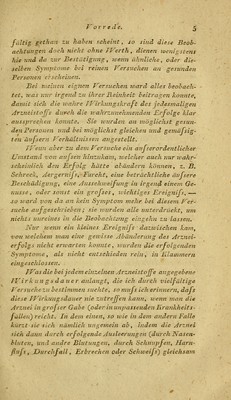 Vorrede. 5
fältig gethan zu haben scheint, so sind diese Beob-
achtungen doch nicht ohne Werth, dienen wenigstens
hie und da zur Bestätigung, wenn ähnliche, oder die-
selben Symptome bei reinen Versuchen an gesunden
Personen erscheinen.
Bei meinen eignen Versuchen ward alles beobach-
tet, was nur irgend zu ihrer Reinheit beitragen konnte,
damit sich die wahre Wirkungskraft des jedesmaligen
Arzneistoffs durch die wahrzunehmenden Erfolge klar
aussprechen konnte. Sie wurden an möglichst gesun-
den Personen und bei möglichst gleichen und gemäſsig-
ten äuſsern Verhältnissen angestellt.
Wenn aber zu dem Versuche ein auſserordentlicher
Umstand von auſsen hinzukam, welcher auch nur wahr-
scheinlich den Erfolg hätte abändern können, z. B.
Schreck, Aergerniſs, Furcht, eine beträchtliche äuſsere
Beschädigung, eine Ausschweifung in irgend einem Ge-
nusse, oder sonst ein groſses, wichtiges Ereigniſs, —
so ward von da an kein Symptom mehr bei diesem Ver-
suche aufgeschrieben; sie wurden alle unterdrückt, um
nichts unreines in die Beobachtung eingehn zu lassen.
Nur wenn ein kleines Ereigniſs dazwischen kam,
von welchem man eine gewisse Abänderung des Arznei-
erfolgs nicht erwarten konnte, wurden die erfolgenden
Symptome, als nicht entschieden rein, in Klammern
eingeschlossen.
Was die bei jedem einzelnen Arzneistoffe angegebene
Wirkungsdauer anlangt, die ich durch vielfältige
Versuche zu bestimmen suchte, so muſs ich erinnern, daſs
diese Wirkungsdauer nie zutreffen kann, wenn man die
Arznei in groſser Gabe (oder in unpassenden Krankheits-
fällen) reicht. In dem einen, so wie in dem andern Falle
kürzt sie sich nämlich ungemein ab, indem die Arznei
sich dann durch erfolgende Ausleerungen (durch Nasen-
bluten, und andre Blutungen, durch Schnupfen, Harn-
fluſs, Durchfall, Erbrechen oder Schweiſs) gleichsam